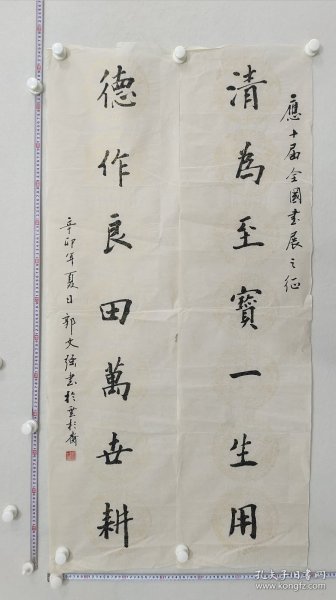 應十届全國書展之征
清為至寶一生用
德作良田萬世耕
辛卯年夏日郭文强書於
孔夫子旧书网
www.kongfz.com